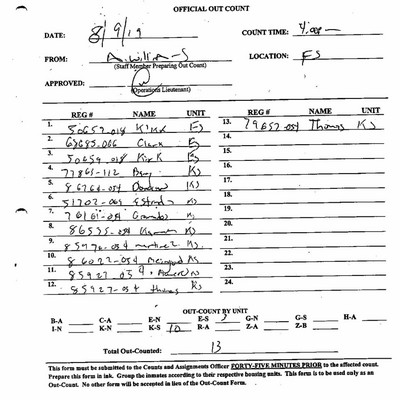 OFFICIAL OUT COUNT
DATE: 8/9/19 COUNT TIME: 4:00
FROM: LOCATION: FS
(Staff Member Preparing Out Count)
APPROVED:
(Operations Lieutenant)
REG # NAME UNIT REG # NAME UNIT
1. 50657-018 Kirk ES 13. 79657-054 Thomas KS
2. 68685-066 Clark ES 14.
3. 50659-018 Kirk ES 15.
4. 77863-112 KS 16.
5. 86764-054 KS 17.
6. 51702-069 Estrada KS 18.
7. KS 19.
8. 86535-054 KS 20.
9. 85976-054 Martinez KS 21.
10. 86022-054 KS 22.
11. 85927-054 KS 23.
12. 85927-054 Thomas KS 24.
OUT-COUNT BY UNIT
B-A C-A E-N E-S 3 G-N G-S H-A
I-N K-N K-S 10 R-A Z-A Z-B
Total Out-Counted: 13
This form must be submitted to the Counts and Assignments Officer FORTY-FIVE MINUTES PRIOR to the affected count.
Prepare this form in ink. Group the inmates according to their respective housing units. This form is to be used only as an
Out-Count. No other form will be accepted in lieu of the Out-Count Form.